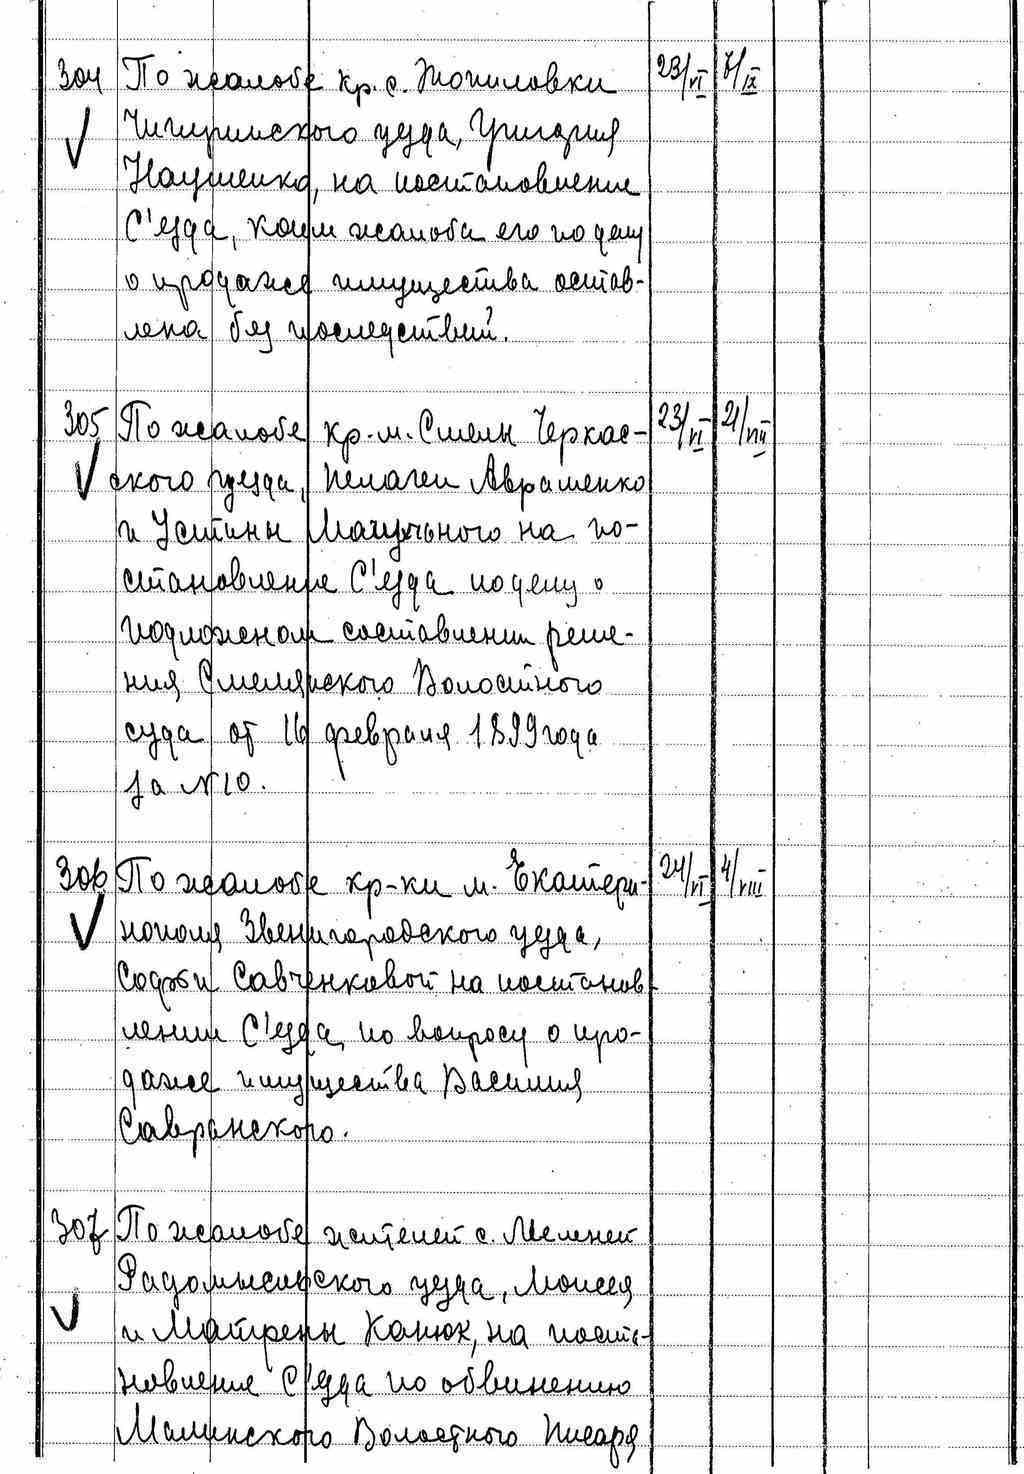 304 По жалобе кр. с. Топиловки 23/VI 7/IX
Чигиринского уезда, Григория
Наушенко, на постановление
С'езда, коим жалоба его по делу
о продаже имущества остав-
лена без последствий.
305 По жалобе кр. м. Смелы Черкас- 23/VI 21/VII
ского уезда, Пелагеи Авраменко
и Устины Магульного на по-
становление С'езда по делу о
подложном составлении реше-
ния Смелянского Волостного
суда от 16 февраля 1899 года
за №10.
306 По жалобе кр-ки м. Екатери- 24/VI 4/VIII
нополя Звенигородского уезда,
Софьи Савченковой на постанов-
лении С'езда, по вопросу о про-
даже имущества Василия
Савранского.
307 По жалобе жителей с. Меленей
Радомысльского уезда, Моисея
и Матрены Канюк, на поста-
новление С'езда по обвинению
Малинского Волостного Писаря